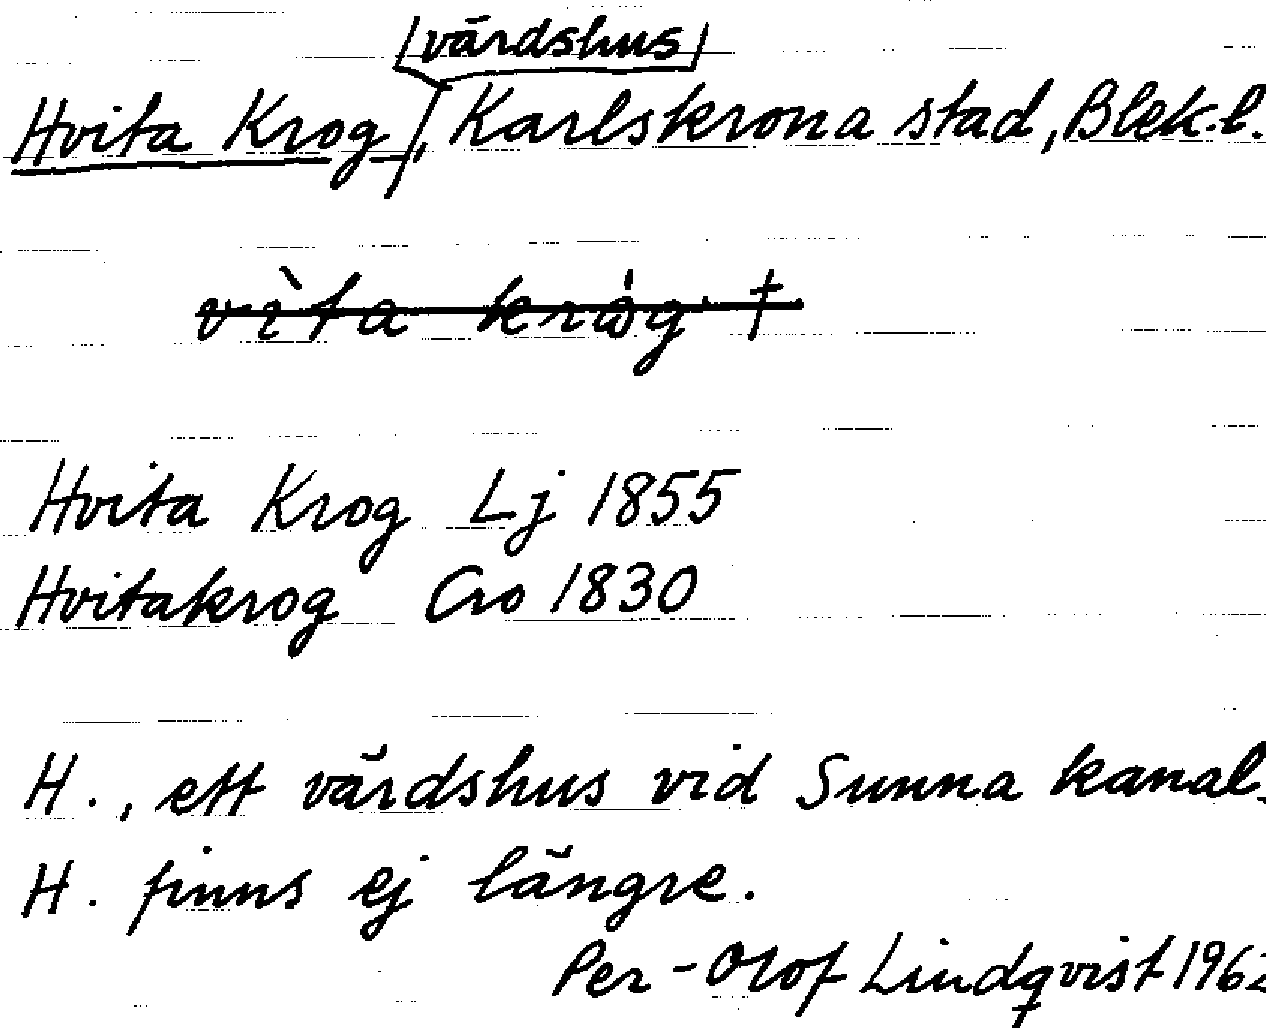 värdshus
Hvita Krog, Karlskrona stad, Blek.l.
vìta kråg †
Hvita Krog Lj 1855
Hvitakrog Cro 1830
H., ett värdshus vid Sunna kanal.
H. finns ej längre.
Per-Olof Lindqvist 1962